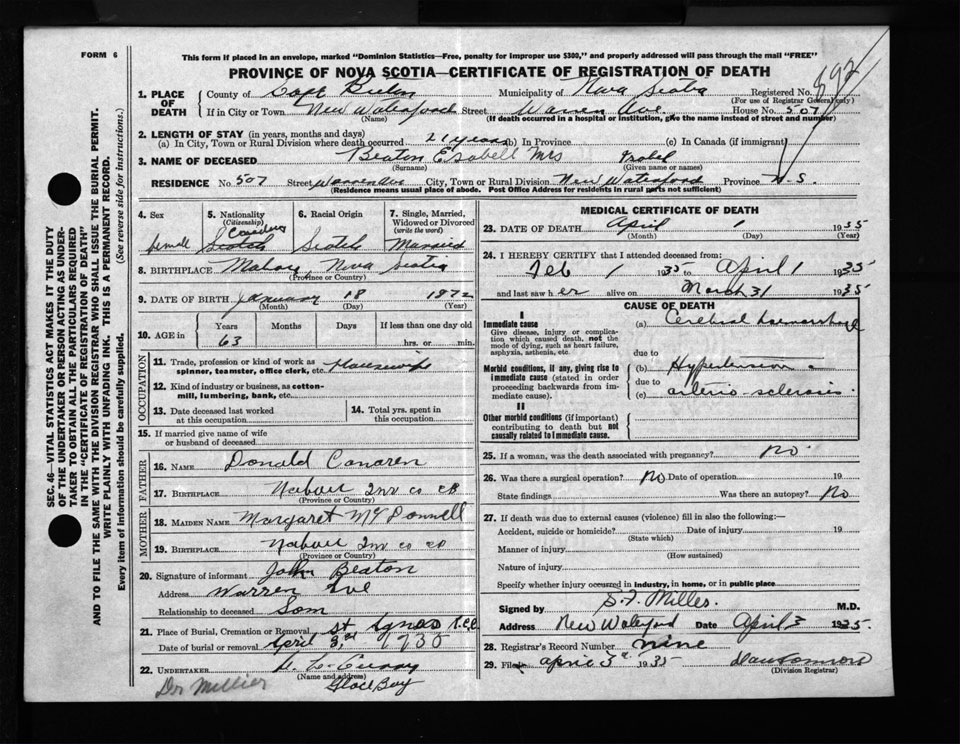 FORM 6
This form if placed in an envelope, marked "Dominion Statistics—Free, penalty for improper use $300," and properly addressed will pass through the mail "FREE"
PROVINCE OF NOVA SCOTIA—CERTIFICATE OF REGISTRATION OF DEATH
SEC. 46—VITAL STATISTICS ACT MAKES IT THE DUTY
OF THE UNDERTAKER OR PERSON ACTING AS UNDER-
TAKER TO OBTAIN ALL THE PARTICULARS REQUIRED
IN THE "CERTIFICATE OF REGISTRATION OF DEATH"
AND TO FILE THE SAME WITH THE DIVISION REGISTRAR WHO SHALL ISSUE THE BURIAL PERMIT.
WRITE PLAINLY WITH UNFADING INK. THIS IS A PERMANENT RECORD.
Every item of information should be carefully supplied. (See reverse side for instructions.)
1. PLACE OF DEATH
County of Cape Breton Municipality of Nova Scotia Registered No.
(For use of Registrar General only)
If in City or Town New Waterford Street Warren Ave House No. 507
(Name) (If death occurred in a hospital or institution, give the name instead of street and number)
2. LENGTH OF STAY (in years, months and days)
(a) In City, Town or Rural Division where death occurred 21 years (b) In Province (c) In Canada (if immigrant)
3. NAME OF DECEASED Beaton Esabell Mrs Isabel
(Surname) (Given name or names)
RESIDENCE No 507 Street Warren Ave City, Town or Rural Division New Waterford Province N.S.
(Residence means usual place of abode. Post Office Address for Residents in rural parts not sufficient)
4. Sex female
5. Nationality (Citizenship) Scotch
6. Racial Origin Scotch
7. Single, Married, Widowed or Divorced (write the word) Married
8. BIRTHPLACE Mabou, Nova Scotia
(Province or Country)
9. DATE OF BIRTH January 18 1872
(Month) (Day) (Year)
10. AGE in Years Months Days If less than one day old
63 hrs. or min.
OCCUPATION
11. Trade, profession or kind of work as spinner, teamster, office clerk, etc. Housewife
12. Kind of industry or business, as cotton-mill, lumbering, bank, etc.
13. Date deceased last worked at this occupation
14. Total yrs. spent in this occupation
15. If married give name of wife or husband of deceased
FATHER
16. NAME Donald
17. BIRTHPLACE Mabou Inv Co CB
(Province or Country)
MOTHER
18. MAIDEN NAME Margaret McDonnell
19. BIRTHPLACE Mabou Inv Co CB
(Province or Country)
20. Signature of informant John Beaton
Address Warren Ave
Relationship to deceased Son
21. Place of Burial, Cremation or Removal St
Date of burial or removal April 3rd 1935
22. UNDERTAKER
(Name and address)
Glace Bay
MEDICAL CERTIFICATE OF DEATH
23. DATE OF DEATH April 1 1935
(Month) (Day) (Year)
24. I HEREBY CERTIFY that I attended deceased from:
Feb 1 1935 to April 1 1935
and last saw her alive on March 31 1935
CAUSE OF DEATH
I
Immediate cause
Give disease, injury or complication which caused death, not the mode of dying, such as heart failure, asphyxia, asthenia, etc.
(a) Cerebral haemorrhage
due to
Morbid conditions, if any, giving rise to immediate cause (stated in order proceeding backwards from immediate cause)
(b) Hypertension
due to
(c) arterio-sclerosis
II
Other morbid conditions (if important) contributing to death but not causally related to immediate cause.
25. If a woman, was the death associated with pregnancy? No
26. Was there a surgical operation? No Date of operation 19
State findings Was there an autopsy? No
27. If death was due to external causes (violence) fill in also the following:—
Accident, suicide or homicide? Date of injury 19
(State which)
Manner of injury
(How sustained)
Nature of injury
Specify whether injury occurred in industry, in home, or in public place
Signed by Miller M.D.
Address New Waterford Date April 3 1935.
28. Registrar's Record Number nine
29. Filed April 3rd 1935
(Division Registrar)
Dr Millier